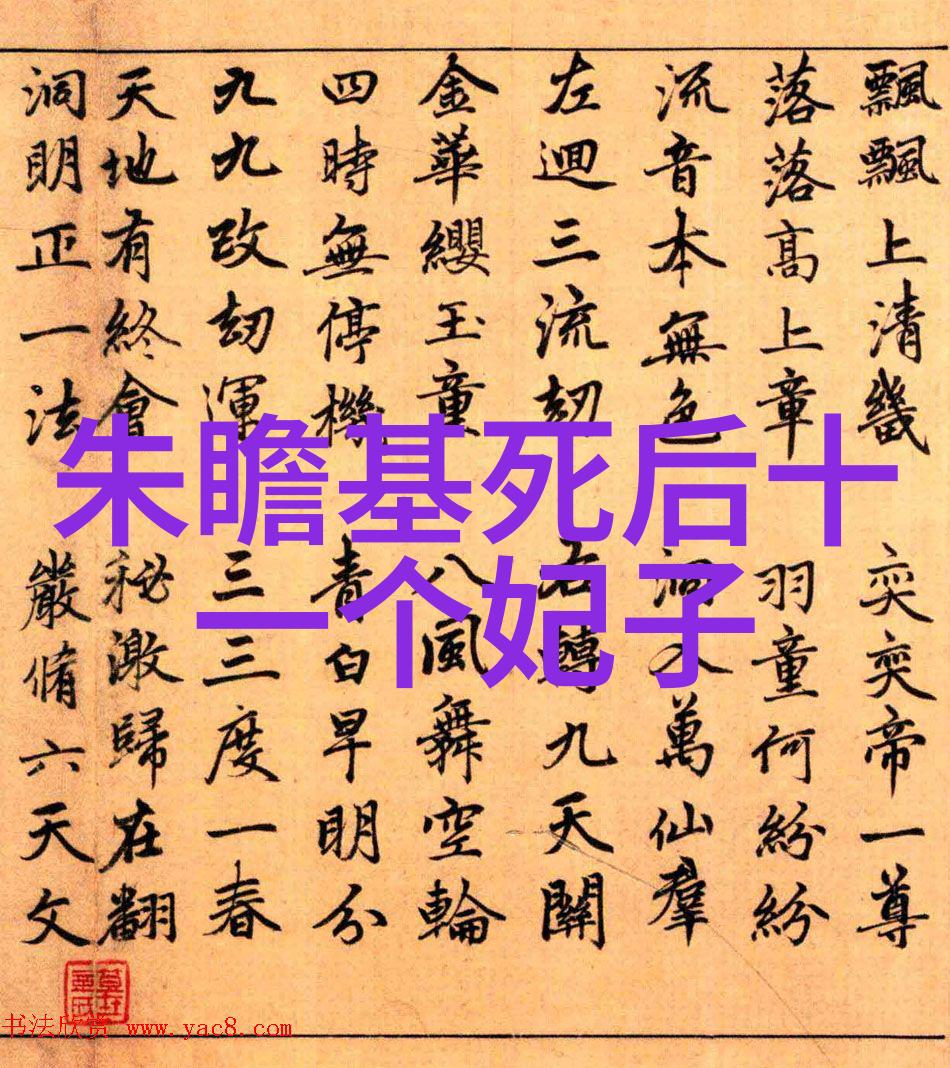 飄飄上清畿 奕奕帝一尊
落落高上章 羽童何紛紛
流音本無色 洞入萬仙羣
左迴三流刧 右轉九天關
金華纓玉童 八風舞空輪
四時無停機 青白早明分
九九改刧運 三三度一春
天地有終會 秘激歸在翻
洞明正一法 嚴脩六天文
朱瞻基死后十
一个妃子
书法欣赏 www.yac8.com